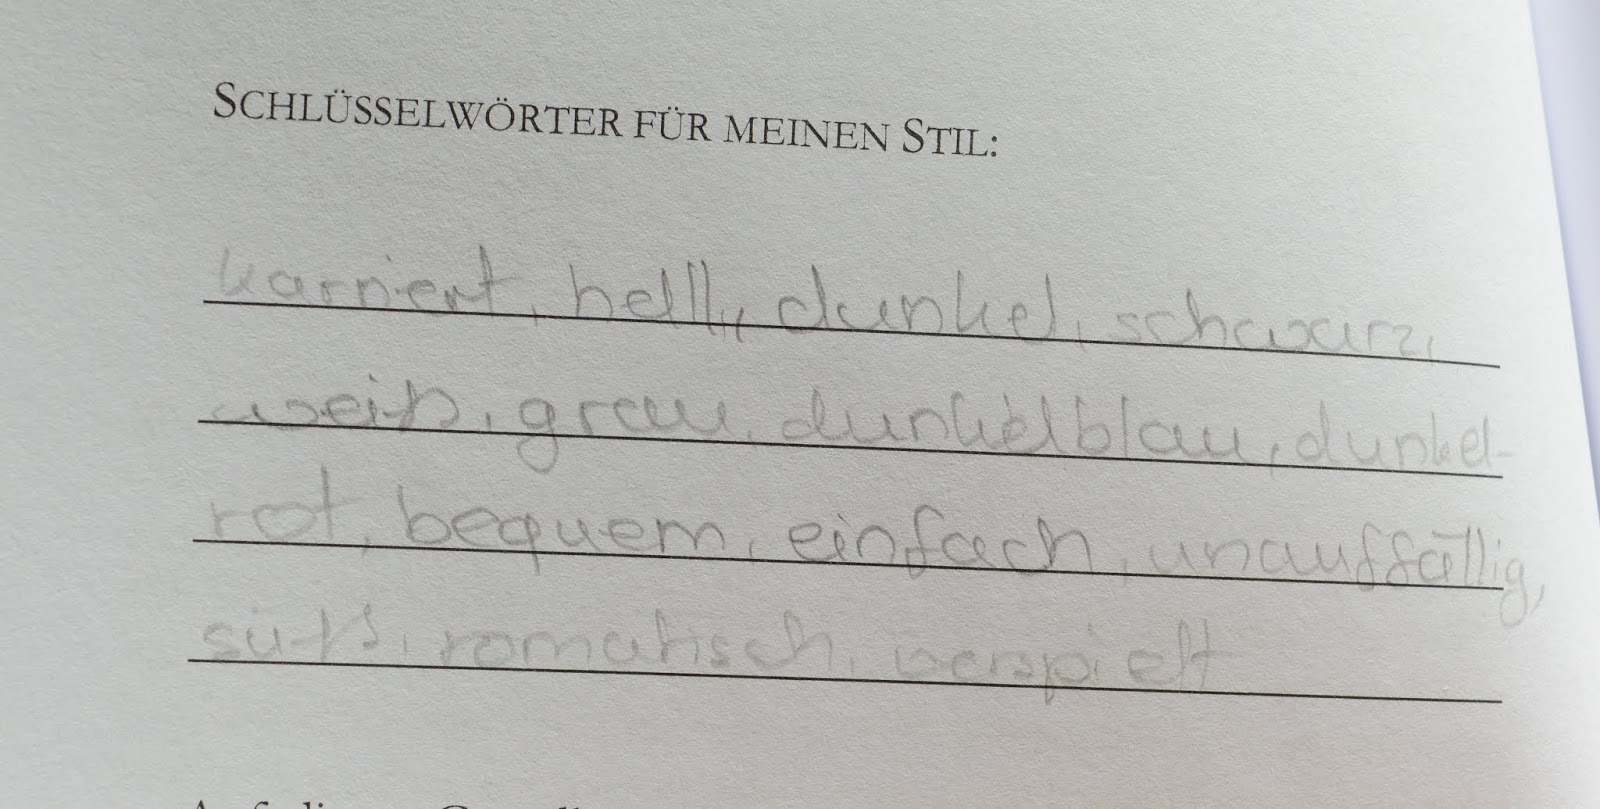 SCHLÜSSELWÖRTER FÜR MEINEN STIL:
karriert, hell, dunkel, schwarz,
weiß, grau, dunkelblau, dunkel-
rot, bequem, einfach, unauffällig,
süß, romatisch, verspielt